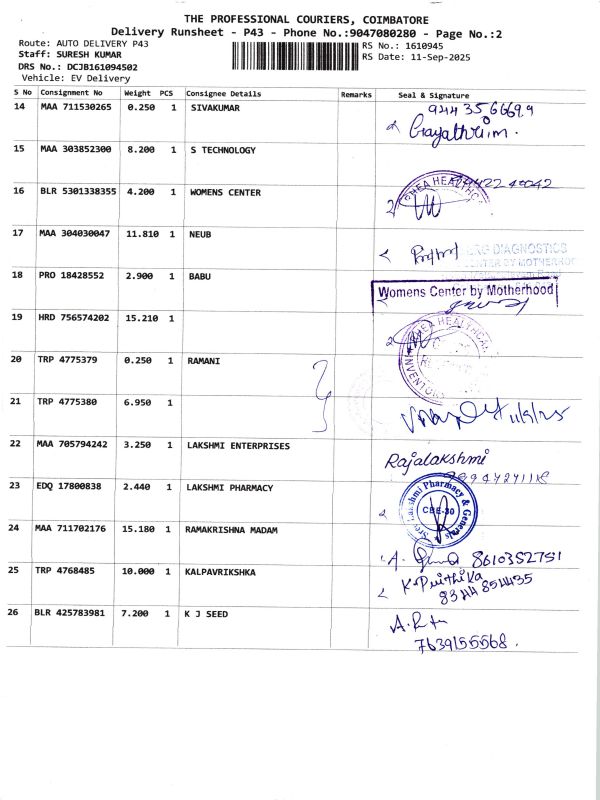 THE PROFESSIONAL COURIERS, COIMBATORE
Delivery Runsheet - P43 - Phone No.:9047080280 - Page No.:2
Route: AUTO DELIVERY P43
Staff: SURESH KUMAR
DRS No.: DCJB161094502
Vehicle: EV Delivery
RS No.: 1610945
RS Date: 11-Sep-2025
S No Consignment No Weight PCS Consignee Details Remarks Seal & Signature
14 MAA 711530265 0.250 1 SIVAKUMAR
15 MAA 303852300 8.200 1 S TECHNOLOGY
16 BLR 5301338355 4.200 1 WOMENS CENTER
17 MAA 304030047 11.810 1 NEUB
18 PRO 18428552 2.900 1 BABU
Womens Center by Motherhood
19 HRD 756574202 15.210 1
20 TRP 4775379 0.250 1 RAMANI
21 TRP 4775380 6.950 1
11/9/25
22 MAA 705794242 3.250 1 LAKSHMI ENTERPRISES
Rajalakshmi
23 EDQ 17800838 2.440 1 LAKSHMI PHARMACY
Sree Lakshmi Pharmacy & Generals
CBE-30
24 MAA 711702176 15.180 1 RAMAKRISHNA MADAM
8610352751
25 TRP 4768485 10.000 1 KALPAVRIKSHKA
K. Prithika
8344854435
26 BLR 425783981 7.200 1 K J SEED
7639155568.